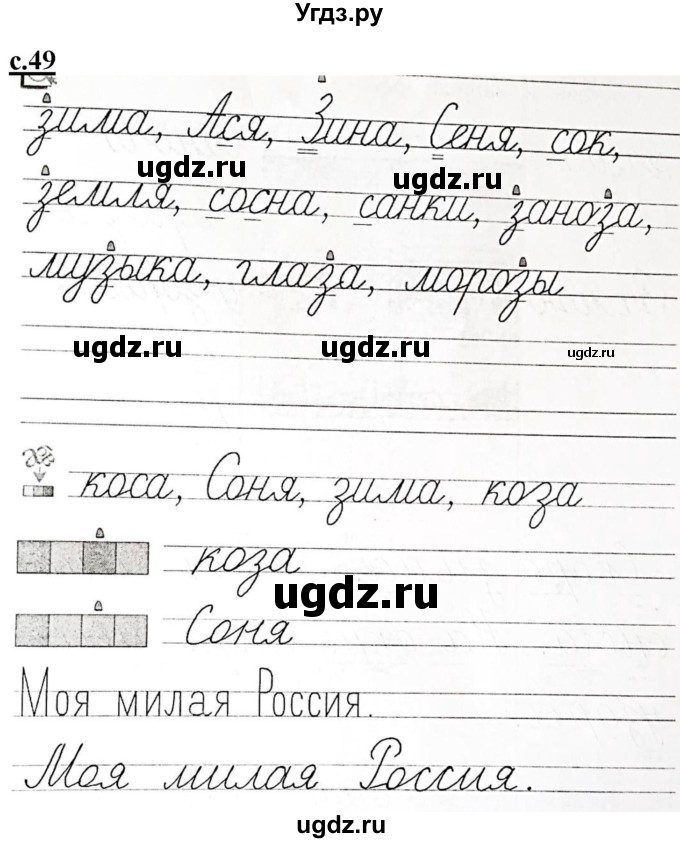 Угдз.ру
с.49
зима, Ася, Зина, Сеня, сок,
ugdz.ru ugdz.ru
земля, сосна, санки, заноза,
музыка, глаза, морозы
ugdz.ru ugdz.ru ugdz.ru
коса, Соня, зима, коза
коза
ugdz.ru
Соня
Моя милая Россия.
Моя милая Россия.
ugdz.ru